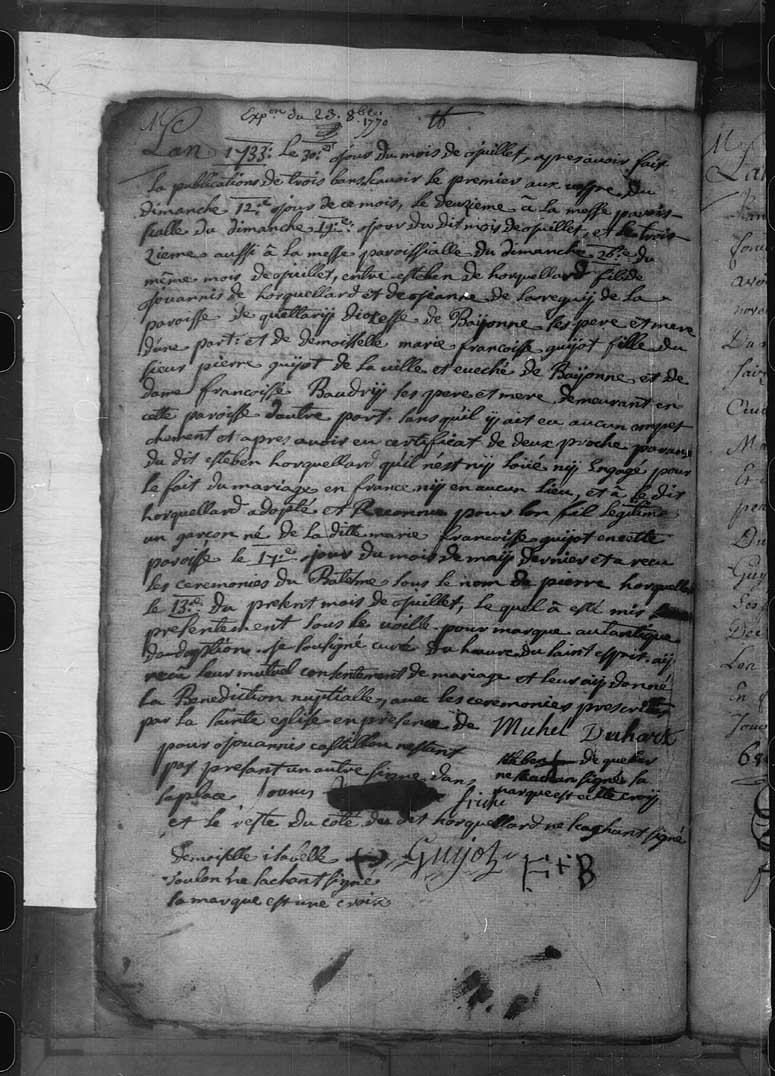 Exp.on du 23. 8bre. 1770
Lan 1733. Le 30.e Jour du mois de Juillet, apres avoir fait
la publications de trois bans scavoir le premier aux du
dimanche 12.e Jour de ce mois, le deuxieme à la messe parois-
sialle du dimanche 19.e Jour du dit mois de Juillet, et le trois-
zieme aussi à la messe paroissialle du dimanche 26.e du
même mois de Juillet, entre esteben de horquellard fils de
Jouannis de horquellard et de Jeanne de Larreguij de la
paroisse de diocesse de Baijonne ses pere et mere
d'une part: et de demoiselle marie francoisse guijot fille du
sieur pierre guijot de la ville et eveché de Baijonne et de
dame francoisse Baudrij ses pere et mere demeurant en
cette paroisse d'autre part. sans qu'il ij ait eu aucun empet-
chement et apres avoir eu certificat de deux proche parans
du dit esteben horquellard qu'il n'est nij Loüé nij Engagé pour
le fait du mariage en france nij en aucun Lieu, et à le dit
horquellard adopté et Reconnu pour son fil Legitime
un garçon né de la ditte marie francoisse guijot en cette
paroisse le 17.e Jour du mois de maij dernier et a recu
les ceremonies du Batême sous le nom de pierre horquella
le 13.e du present mois de Juillet, le quel à esté mis
presentement sous le voille pour marque autantique
Je sousigné curé du havre du saint esprit aij
recu leur mutuel consentement de mariage et leur aij donné
la Benediction nuptialle, avec les ceremonies prescrittes
par la sainte eglise en presence de Michel Duhart
pour Jouannis castillon nestent
pas presant un autre signe dans
la place
esteben de
ne sachan signer sa
marque est cette croij
et le reste du coté du dit horquellard ne sachant signé
Demoiselle isabelle + Guijot E+B
Toulon ne sachant signé
sa marque est une croix